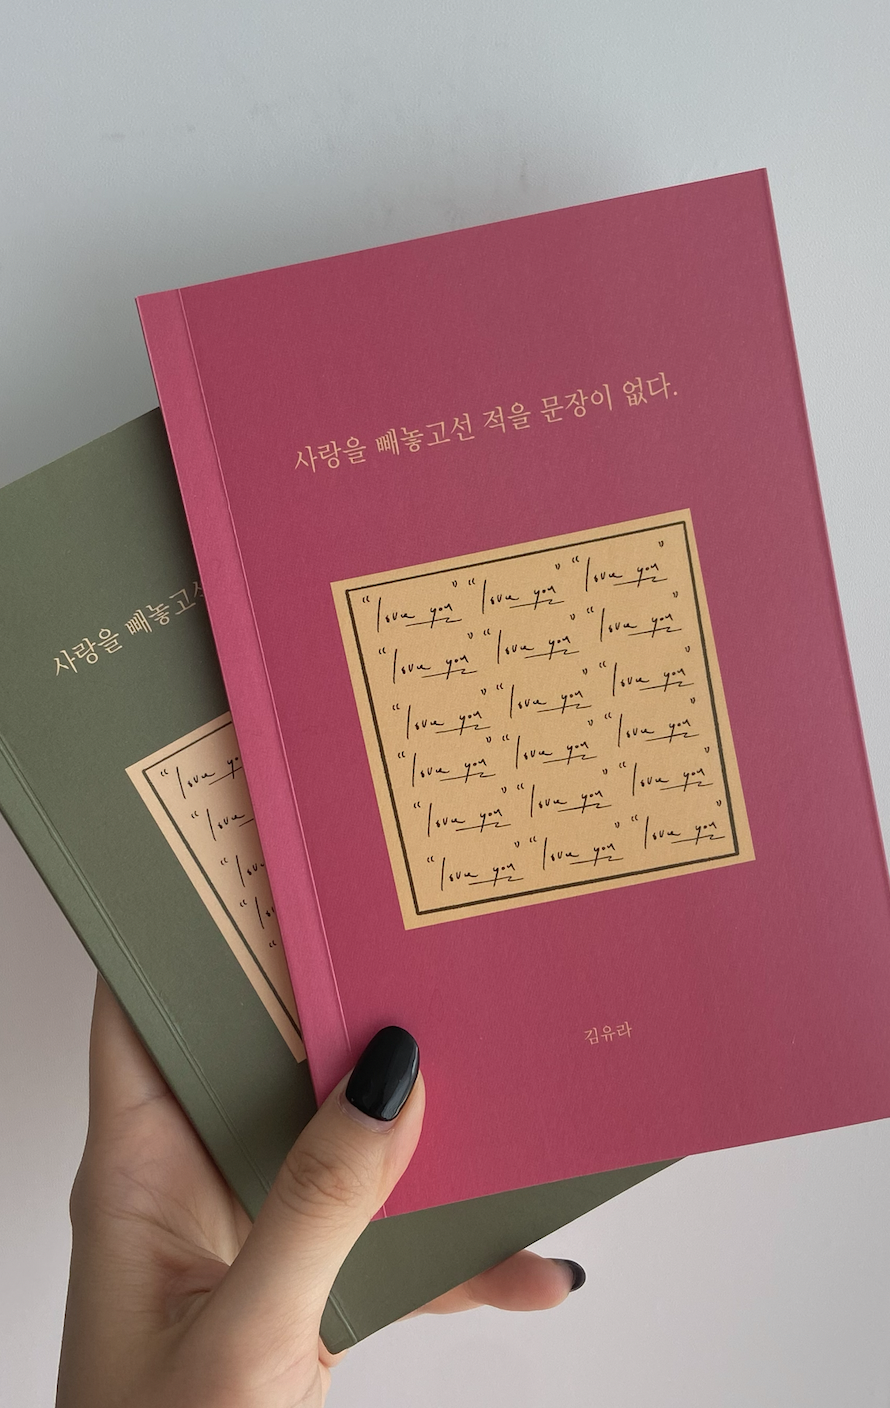 사랑을 빼놓고선 적을 문장이 없다.
“love you” “love you” “love you”
“love you” “love you” “love you”
“love you” “love you” “love you”
“love you” “love you” “love you”
“love you” “love you” “love you”
“love you” “love you” “love you”
김유라
사랑을 빼놓고선
“love you
“love
“love
“love